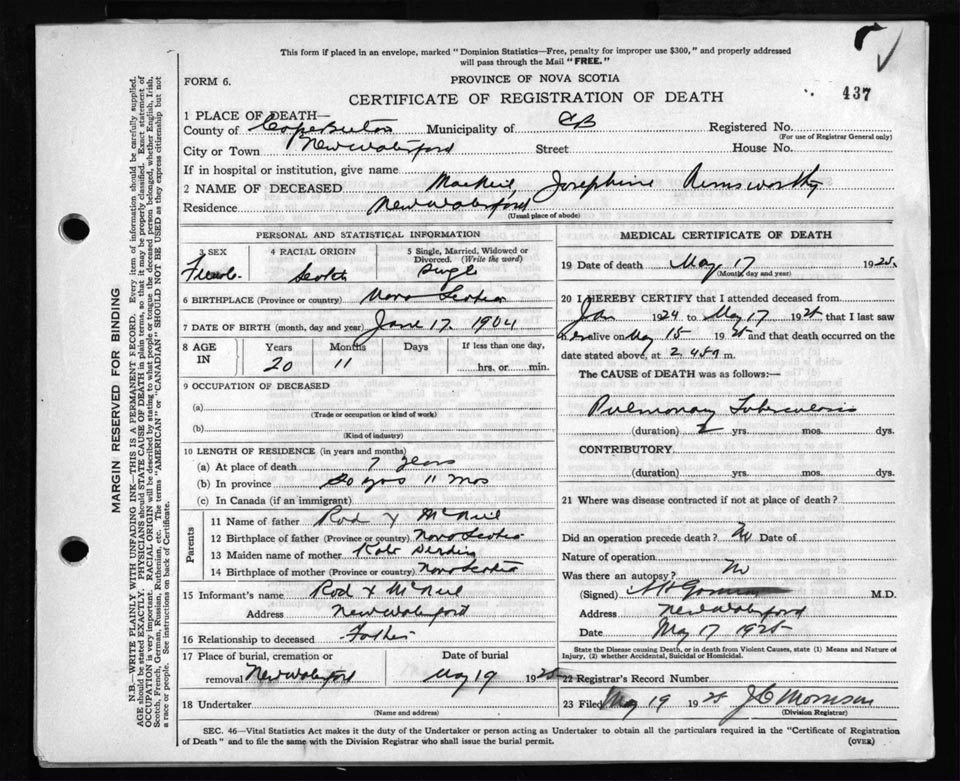 This form if placed in an envelope, marked "Dominion Statistics—Free, penalty for improper use $300," and properly addressed
will pass through the Mail "FREE."
FORM 6.
PROVINCE OF NOVA SCOTIA
CERTIFICATE OF REGISTRATION OF DEATH
437
1 PLACE OF DEATH—
County of Cape Breton Municipality of CB Registered No.
(For use of Registrar General only)
City or Town New Waterford Street House No.
If in hospital or institution, give name
2 NAME OF DECEASED MacNeil, Josephine
Residence New Waterford
(Usual place of abode)
PERSONAL AND STATISTICAL INFORMATION
3 SEX 4 RACIAL ORIGIN 5 Single, Married, Widowed or
Divorced. (Write the word)
Female Scotch Single
6 BIRTHPLACE (Province or country) Nova Scotia
7 DATE OF BIRTH (month, day and year) June 17. 1904
8 AGE IN Years Months Days If less than one day,
20 11 hrs. or min.
9 OCCUPATION OF DECEASED
(a)
(Trade or occupation or kind of work)
(b)
(Kind of industry)
10 LENGTH OF RESIDENCE (in years and months)
(a) At place of death 7 years
(b) In province 20 yrs 11 mos
(c) In Canada (if an immigrant)
Parents
11 Name of father Rod Y McNeil
12 Birthplace of father (Province or country) Nova Scotia
13 Maiden name of mother Kate
14 Birthplace of mother (Province or country) Nova Scotia
15 Informant's name Rod Y McNeil
Address New Waterford
16 Relationship to deceased Father
17 Place of burial, cremation or Date of burial
removal New Waterford May 19 1925
18 Undertaker
(Name and address)
MEDICAL CERTIFICATE OF DEATH
19 Date of death May 17 1925
(Month, day and year)
20 I HEREBY CERTIFY that I attended deceased from
Jan 1924 to May 17 1925 that I last saw
her alive on May 15 1925 and that death occurred on the
date stated above, at 2.45 m.
The CAUSE of DEATH was as follows:—
Pulmonary Tuberculosis
(duration) 2 yrs. mos. dys.
CONTRIBUTORY
(duration) yrs. mos. dys.
21 Where was disease contracted if not at place of death?
Did an operation precede death? No Date of
Nature of operation
Was there an autopsy? No
(Signed) M.D.
Address New Waterford
Date May 17 1925
State the Disease causing Death, or in death from Violent Causes, state (1) Means and Nature of
Injury, (2) whether Accidental, Suicidal or Homicidal.
22 Registrar's Record Number
23 Filed May 19 1925 J C Morrison
(Division Registrar)
SEC. 46—Vital Statistics Act makes it the duty of the Undertaker or person acting as Undertaker to obtain all the particulars required in the "Certificate of Registration
of Death" and to file the same with the Division Registrar who shall issue the burial permit.
(OVER)
MARGIN RESERVED FOR BINDING
N.B.—WRITE PLAINLY WITH UNFADING INK—THIS IS A PERMANENT RECORD. Every item of information should be carefully supplied.
AGE should be stated EXACTLY. PHYSICIANS should STATE CAUSE OF DEATH in plain terms, so that it may be properly classified. Exact statement of
OCCUPATION is very important. RACIAL ORIGIN will be described by stating to what people or tongue the deceased person belonged, whether English, Irish,
Scotch, French, German, Russian, Ruthenian, etc. The terms "AMERICAN" or "CANADIAN" SHOULD NOT BE USED as they express citizenship but not
a race or people. See instructions on back of Certificate.